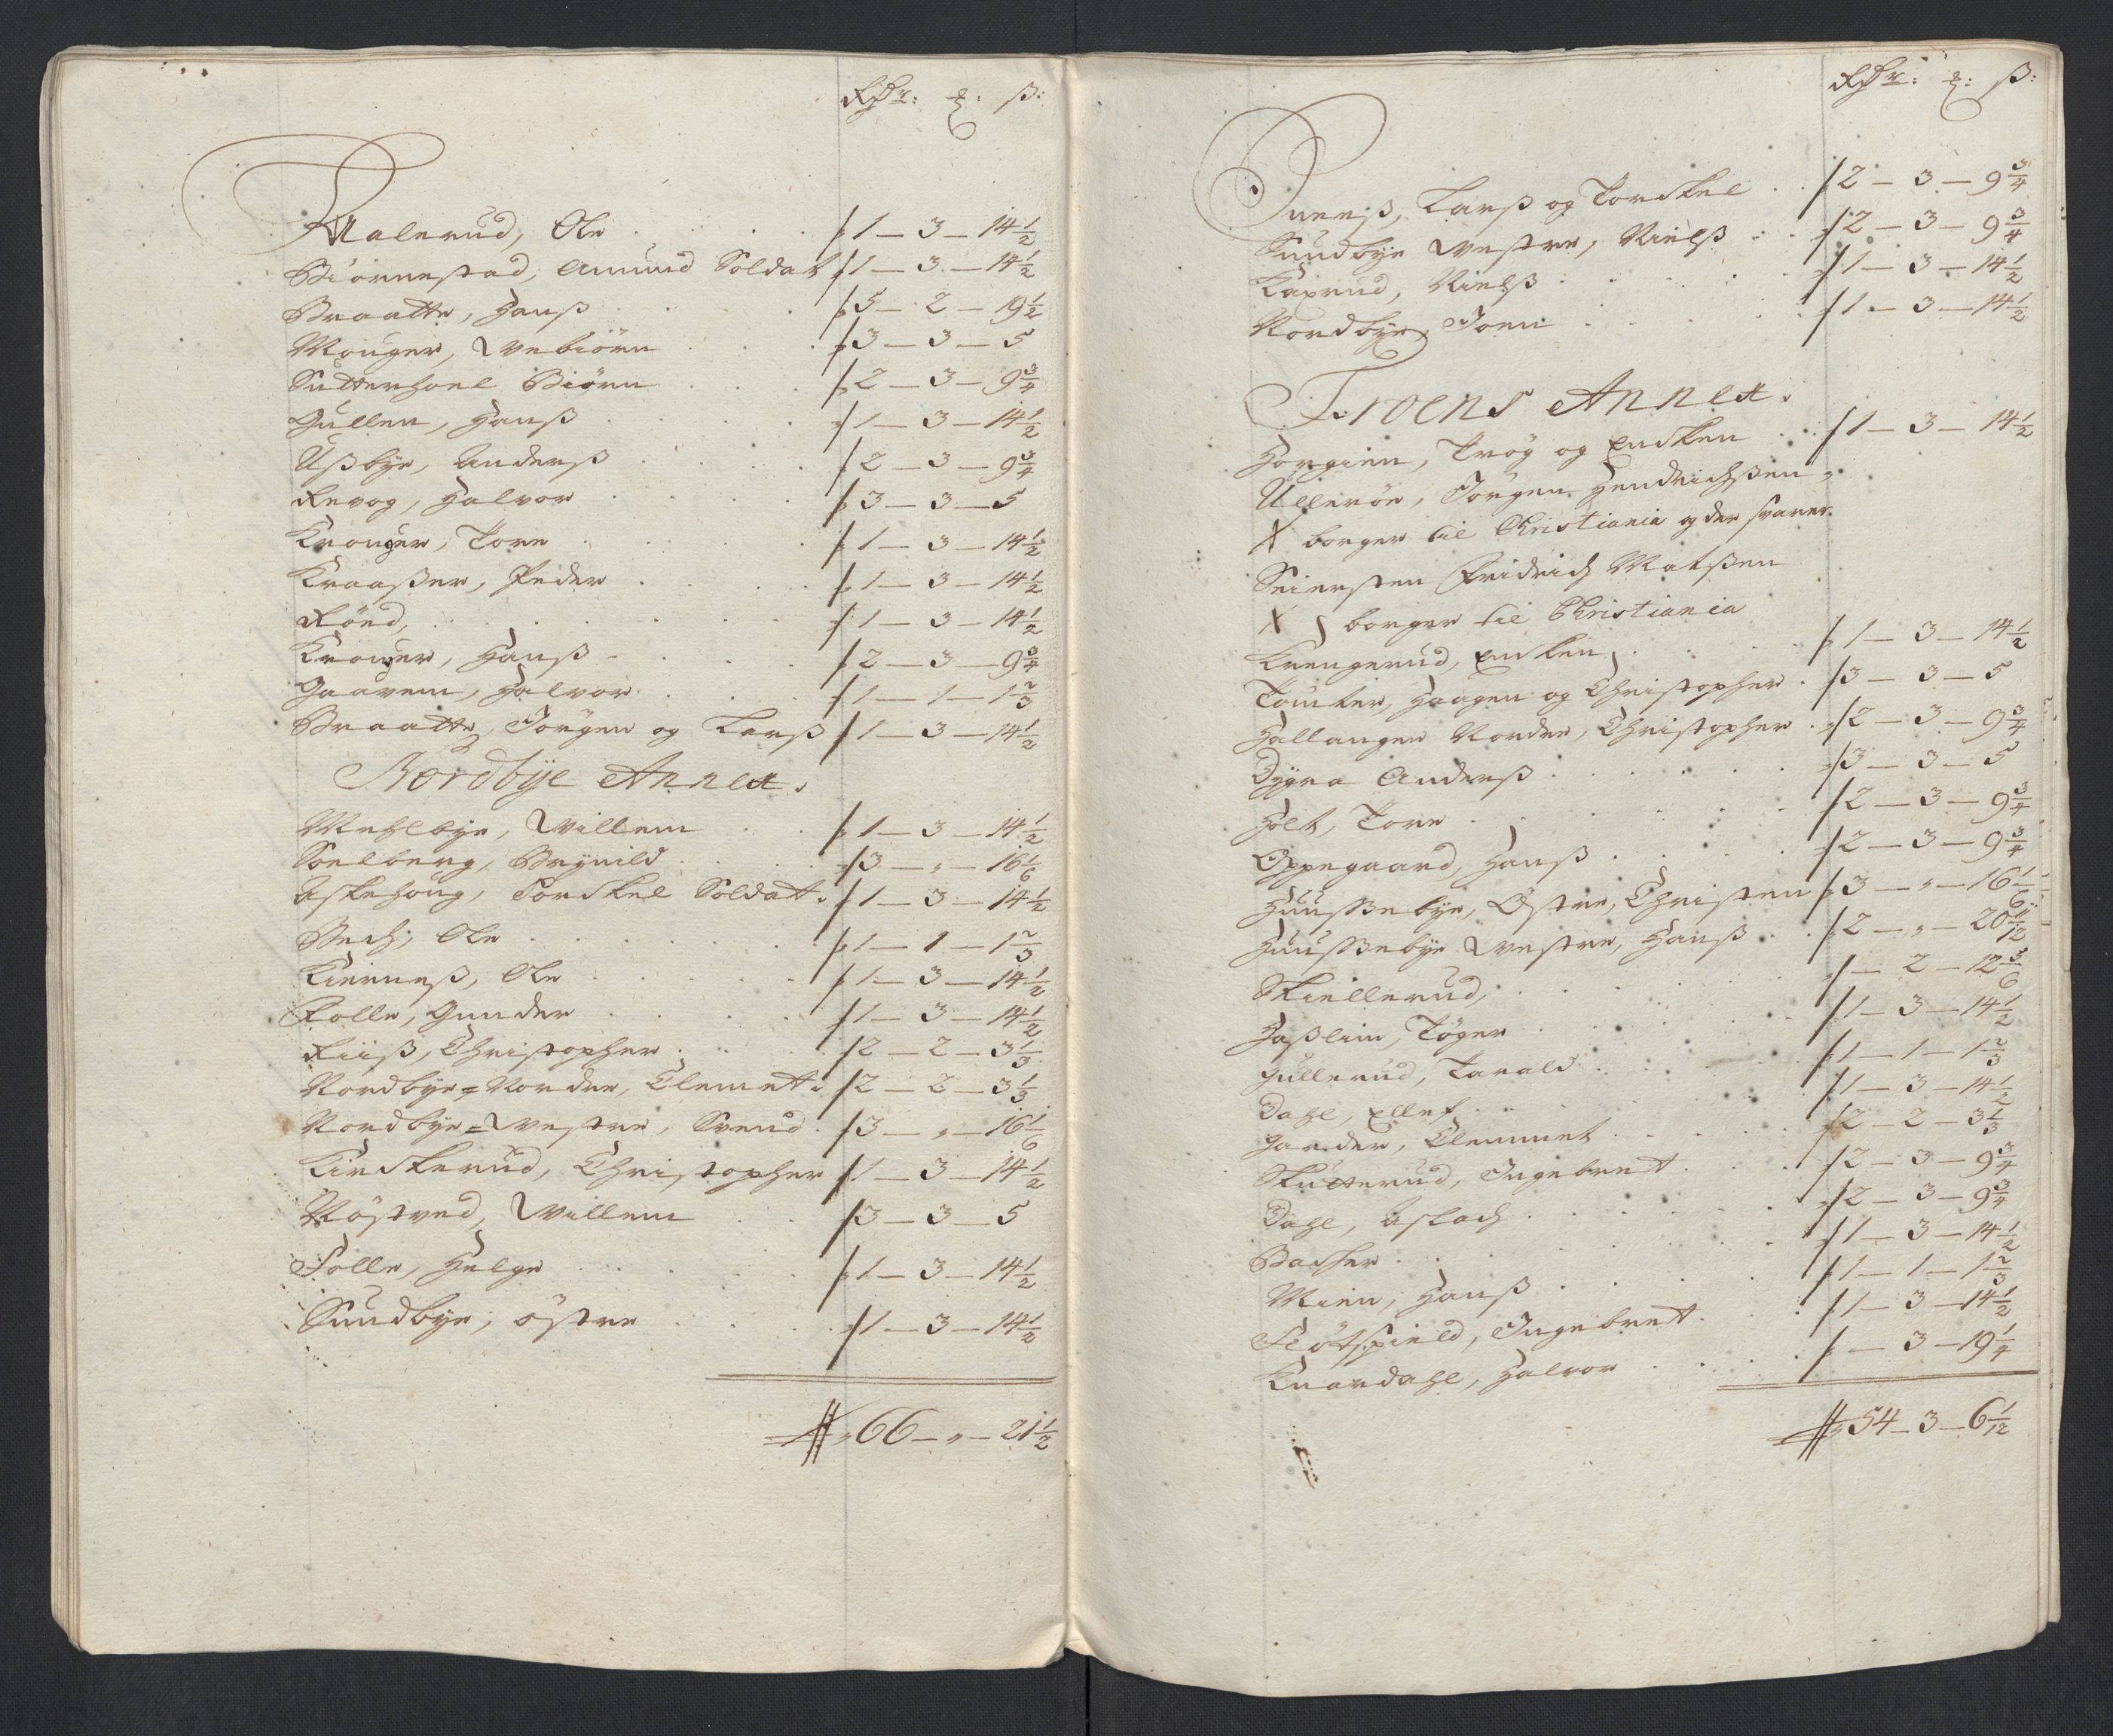 Rdr: ℥: ß:
Malerud, Ole 1 — 3 — 14½
Biörnestad, Amund Soldat 1 — 3 — 14½
Braatte, Hanß 5 — 2 — 19½
Mouger, Webiörn 3 — 3 — 5
Sutterhoel Biörn 2 — 3 — 9¾
Gullen, Hanß 1 — 3 — 14½
Ußbÿe, Anderß 2 — 3 — 9¾
Revog, Halvor 3 — 3 — 5
Krouger, Tore 1 — 3 — 14½
Kraaßer, Peder 1 — 3 — 14½
Rönd, 1 — 3 — 14½
Krouger, Hanß 2 — 3 — 9¾
Gaarem, Halvor 1 — 1 — 1⅔
Braatte, Jörgen og Larß 1 — 3 — 14½
Nordbÿe Annex.
Mehlbÿe, Willem 1 — 3 — 14½
Soelberg, Brÿnild 3 — „ — 16⅙
Askehoug, Torkel Soldatt 1 — 3 — 14½
Bech, Ole 1 — 1 — 1⅔
Kierneß, Ole 1 — 3 — 14½
Folle, Gunder 1 — 3 — 14½
Riiß, Christopher 2 — 2 — 3⅓
Nordbÿe = Nordre, Clemet 2 — 2 — 3⅓
Nordbÿe = Westre, Svend 3 — „ — 16⅙
Kirkerud, Christopher 1 — 3 — 14½
Röstved, Willem 3 — 3 — 5
Folle, Helge 1 — 3 — 14½
Sundbÿe, östre 1 — 3 — 14½
66 — „ — 21½
Rdr: ℥: ß:
Larß og Torkel 2 — 3 — 9¾
Sundbÿe Westre, Nielß 2 — 3 — 9¾
Kaxrud, Nielß 1 — 3 — 14½
Nordbÿe, Joen 1 — 3 — 14½
Froens Annex.
Horgien, Trög og Enken 1 — 3 — 14½
Ulleröe, Jörgen Hendrichßen,
X borger til Christiania og der svarer
Seiersten Fridrich Matßen
X borger til Christiania
Krengerud, Enken 1 — 3 — 14½
Tomter, Haagen og Christopher 3 — 3 — 5
Hallangen Nordre, Christopher 2 — 3 — 9¾
Dÿgra Anderß 3 — 3 — 5
Holt, Tore 2 — 3 — 9¾
Oppegaard, Hanß 2 — 3 — 9¾
Huußebÿe, Östre, Christen 3 — „ — 16⅙
Huußebÿe Westre, Hanß 2 — „ — 20 11/12
Skiellerud, — 2 — 12 5/6
Haßlum, Töger 1 — 3 — 14½
Gullerud, Tarald 1 — 1 — 1⅔
Dahl, Ellef 1 — 3 — 14½
Gaarder, Clemmet 2 — 2 — 3⅓
Skutterud, Ingebrett 2 — 3 — 9¾
Dahl, Aslach 2 — 3 — 9¾
Backer 1 — 3 — 14½
Mien, Hanß 1 — 1 — 1⅔
Flötspield, Ingebrett 1 — 3 — 14½
Knardahl, Halvor — 3 — 19¼
54 — 3 — 6 1/12